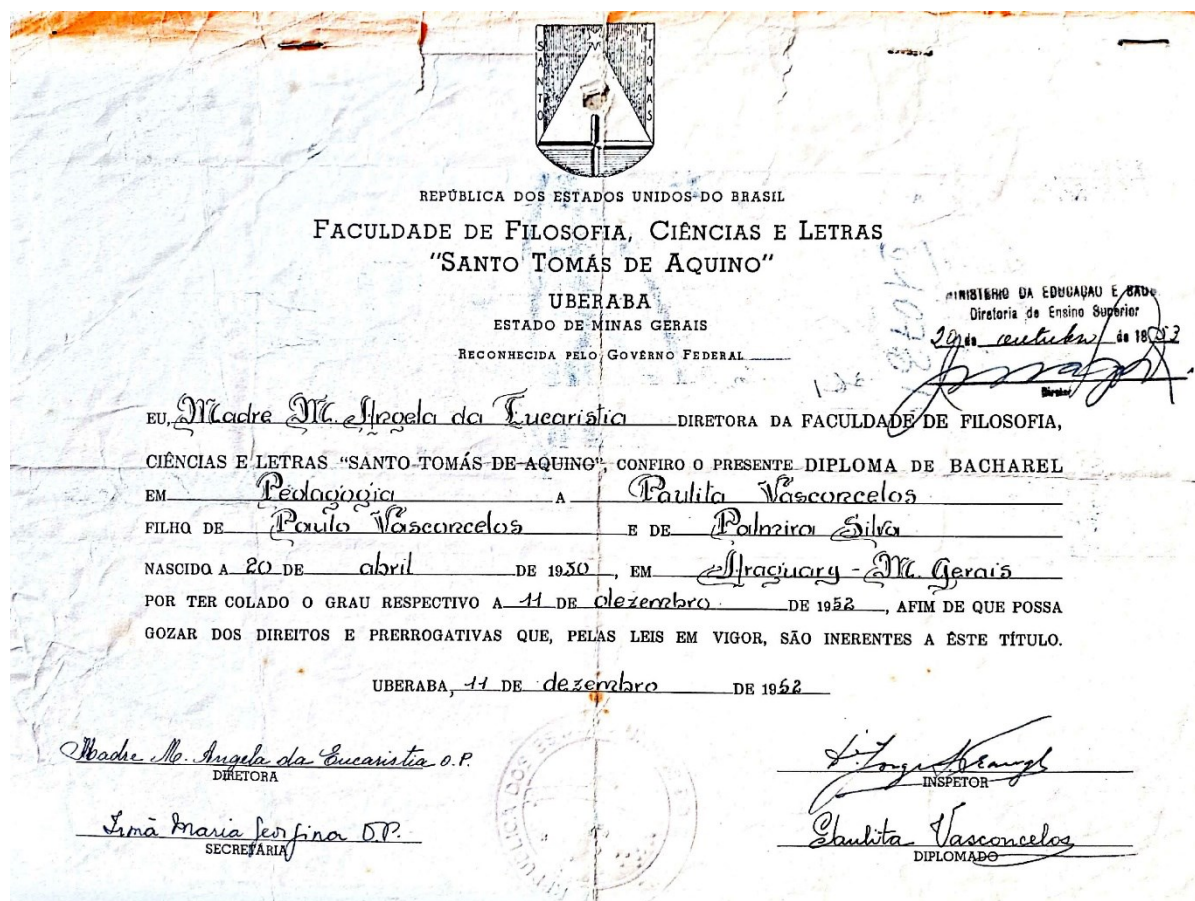 SANTO TOMAS
REPÚBLICA DOS ESTADOS UNIDOS DO BRASIL
FACULDADE DE FILOSOFIA, CIÊNCIAS E LETRAS
"SANTO TOMÁS DE AQUINO"
UBERABA
ESTADO DE MINAS GERAIS
RECONHECIDA PELO GOVÊRNO FEDERAL
MINISTERIO DA EDUCAÇAO E SAUDE
Diretoria de Ensino Superior
20 de outubro de 1953
Diretor
EU, Madre M. Angela da Eucaristia DIRETORA DA FACULDADE DE FILOSOFIA,
CIÊNCIAS E LETRAS "SANTO TOMÁS DE AQUINO", CONFIRO O PRESENTE DIPLOMA DE BACHAREL
EM Pedagogia A Paulita Vasconcelos
FILHO DE Paulo Vasconcelos E DE Palmira Silva
NASCIDO A 20 DE abril DE 1930, EM Araguary - M. Gerais
POR TER COLADO O GRAU RESPECTIVO A 11 DE dezembro DE 1952, AFIM DE QUE POSSA
GOZAR DOS DIREITOS E PRERROGATIVAS QUE, PELAS LEIS EM VIGOR, SÃO INERENTES A ÊSTE TÍTULO.
UBERABA, 11 DE dezembro DE 1952
Madre M. Angela da Eucaristia O.P.
DIRETORA
INSPETOR
Irmã Maria Georgina O.P.
SECRETÁRIA
Paulita Vasconcelos
DIPLOMADO